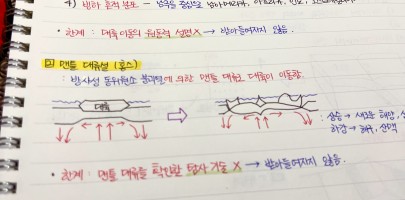 4) 빙하 흔적 분포 - 남극을 중심으로 남아메리카, 아프리카, 인도,
• 한계 : 대륙 이동의 원동력 설명 X → 받아들여지지 않음.
② 맨틀 대류설 (홈스)
: 방사성 동위원소 붕괴열에 의한 맨틀 대류로 대륙이 이동함.
대륙
: 상승 → 새로운 해양,
하강 → 해구, 산맥
• 한계 : 맨틀 대류를 확인할 탐사 기술 X → 받아들여지지 않음.